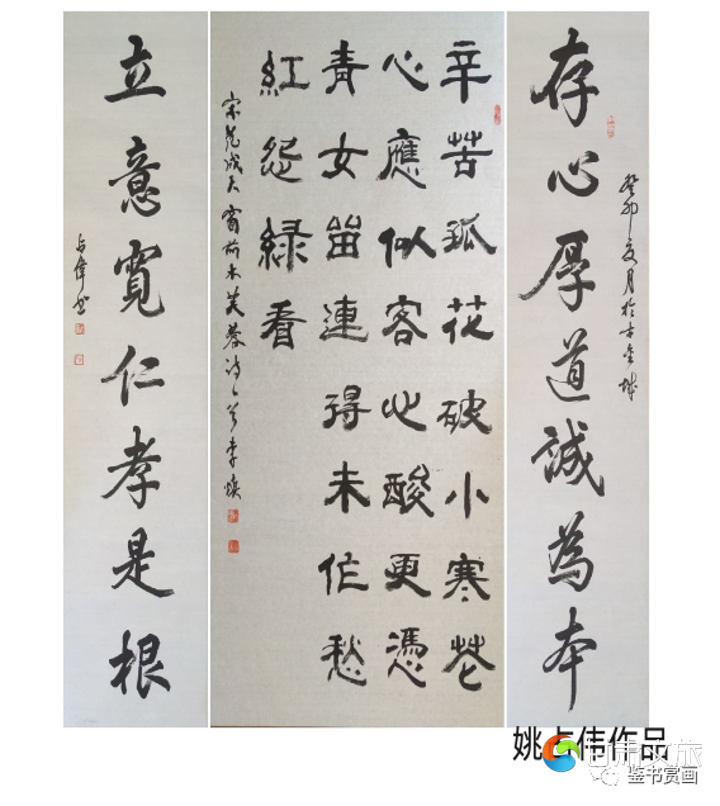 存心厚道誠為本
癸卯夏月於古金城
辛苦孤花破小寒花
心應似客心酸更憑
青女留連得未作愁
紅怨緑看
宋范成大窗前木芙蓉詩李煥
立意寬仁孝是根
占偉书
姚占伟作品
甘肃文旅
鉴书赏画